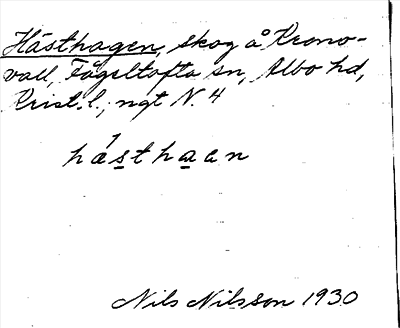 Hästhagen, skog å Krono-
vall, Fågeltofta sn, Albo hd,
Krist. l., ngt N. 4
hästhaan
Nils Nilsson 1930